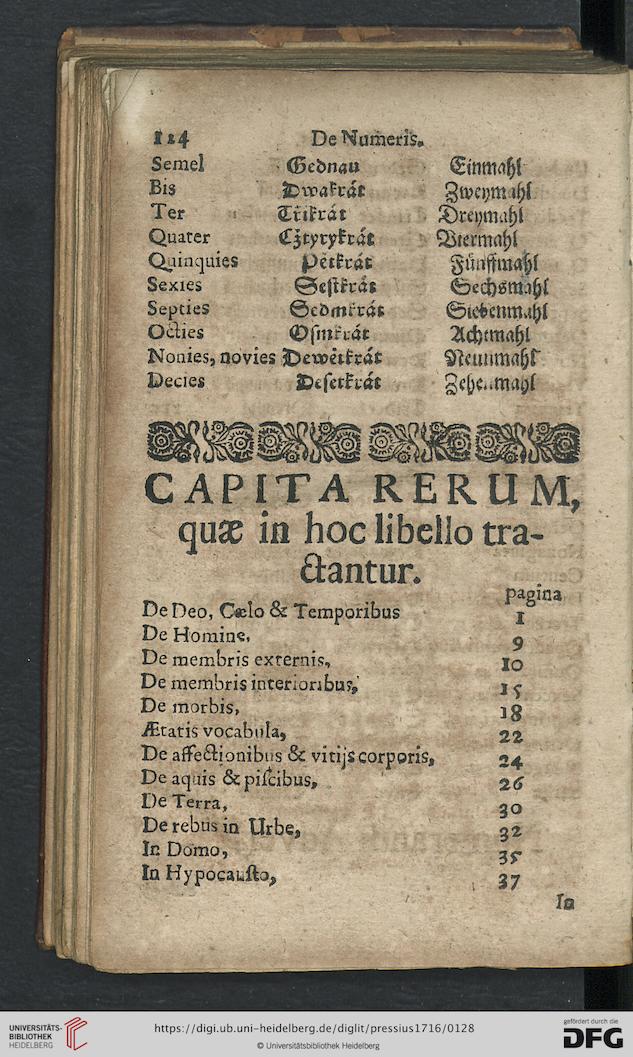 124 De Numeris.
Semel Gednau Einmahl
Bis Dwakrát Zweymahl
Ter Třikrát Dreymahl
Quater Cžtyrykrát Viermahl
Quinquies Pětkrát Fünffmahl
Sexies Sestkrát Sechsmahl
Septies Sedmkrát Siebenmahl
Octies Osmkrát Achtmahl
Nonies, novies Dewětkrát Neunmahl
Decies Desetkrát Zehenmahl
CAPITA RERUM,
quæ in hoc libello tra-
ctantur.
pagina
De Deo, Cælo & Temporibus 1
De Homine, 9
De membris externis, 10
De membris interioribus, 15
De morbis, 18
Ætatis vocabula, 22
De affectionibus & vitijs corporis, 24
De aquis & piscibus, 26
De Terra, 30
De rebus in Urbe, 32
In Domo, 35
In Hypocausto, 37
In
UNIVERSITÄTS-
BIBLIOTHEK
HEIDELBERG
https://digi.ub.uni-heidelberg.de/diglit/pressius1716/0128
© Universitätsbibliothek Heidelberg
gefördert durch die
DFG